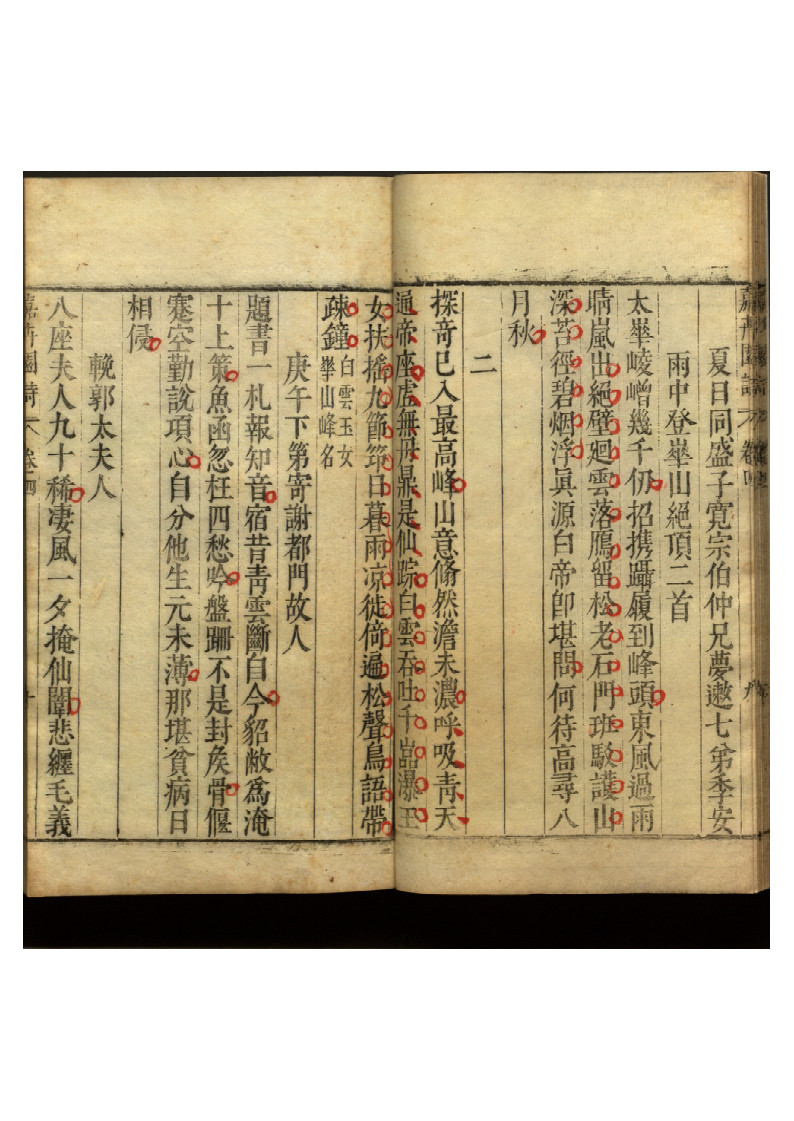 夏日同盛子寬宗伯仲兄夢遨七弟季安
雨中登崋山絕頂二首
太崋崚嶒幾千仞招携躡履到峰頭東風過雨
晴嵐出絕壁廻雲落鴈留松老石門班駁護山
深苔徑碧烟浮眞源白帝卽堪問何待高尋八
月秋
二
探奇已入最高峰山意翛然澹未濃呼吸靑天
通帝座虛無丹鼎是仙踪白雲吞吐千嵓瀑玉
女扶搖九節笻日暮雨凉徙倚遍松聲鳥語帶
疎鐘白雲玉女崋山峰名
庚午下第寄謝都門故人
題書一札報知音宿昔靑雲斷自今貂敝爲淹
十上策魚函忽枉四愁吟盤跚不是封矦骨偃
蹇空勤說項心自分他生元未薄那堪貧病日
相侵
輓郭太夫人
八座夫人九十稀凄風一夕掩仙闈悲纏毛義